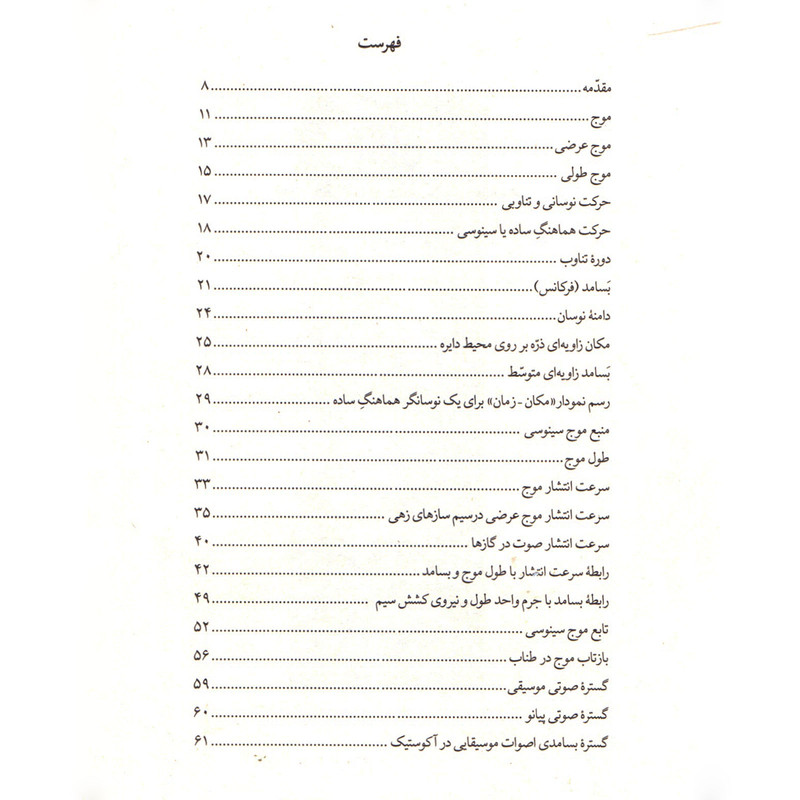 فهرست
مقدّمه ........ ۸
موج ........ ۱۱
موج عرضی ........ ۱۳
موج طولی ........ ۱۵
حرکت نوسانی و تناوبی ........ ۱۷
حرکت هماهنگِ ساده یا سینوسی ........ ۱۸
دورهٔ تناوب ........ ۲۰
بَسامد (فرکانس) ........ ۲۱
دامنهٔ نوسان ........ ۲۴
مکان زاویه‌ای ذرّه بر روی محیط دایره ........ ۲۵
بَسامد زاویه‌ای متوسّط ........ ۲۸
رسم نمودار «مکان - زمان» برای یک نوسانگر هماهنگِ ساده ........ ۲۹
منبع موج سینوسی ........ ۳۰
طول موج ........ ۳۱
سرعت انتشار موج ........ ۳۳
سرعت انتشار موج عرضی درسیم سازهای زهی ........ ۳۵
سرعت انتشار صوت در گازها ........ ۴۰
رابطهٔ سرعت انتشار با طول موج و بسامد ........ ۴۲
رابطهٔ بسامد با جرم واحد طول و نیروی کشش سیم ........ ۴۹
تابع موج سینوسی ........ ۵۲
بازتاب موج در طناب ........ ۵۶
گسترهٔ صوتی موسیقی ........ ۵۹
گسترهٔ صوتی پیانو ........ ۶۰
گسترهٔ بسامدی اصوات موسیقایی در آکوستیک ........ ۶۱